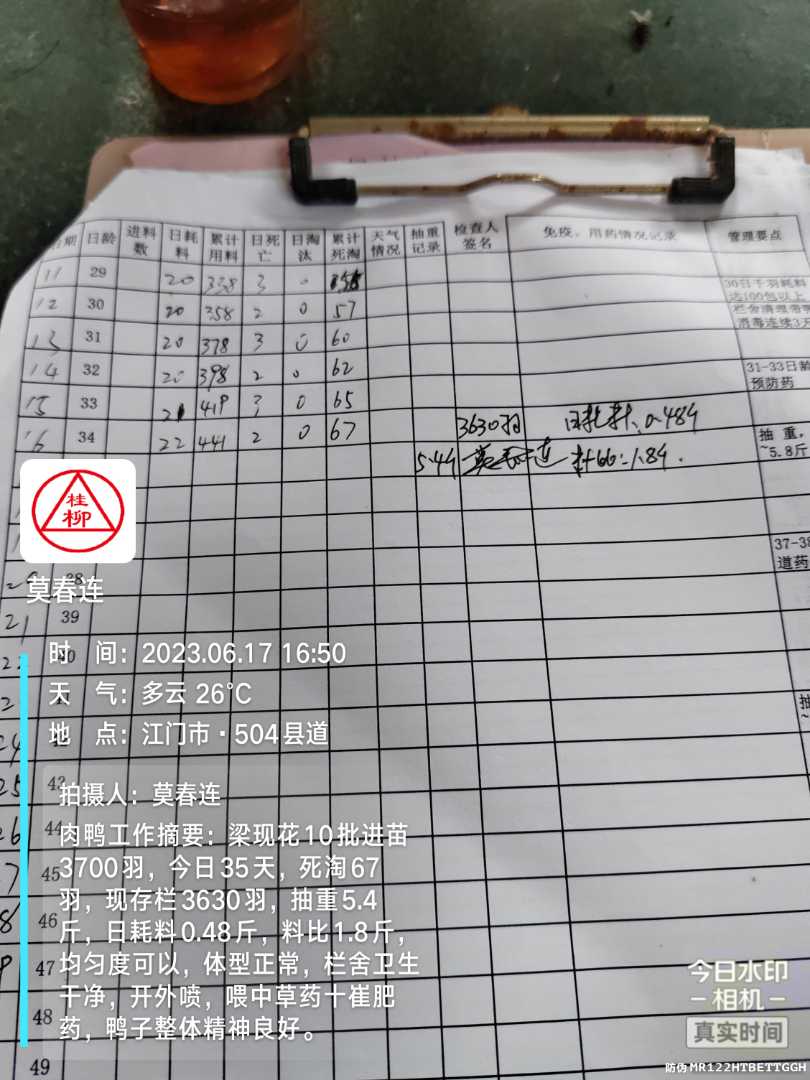 日龄 进料数 日耗料 累计用料 日死亡 日淘汰 累计死淘 天气情况 抽重记录 检查人签名 免疫，用药情况记录 管理要点
11 29 20 338 3 0
12 30 20 358 2 0 57
13 31 20 378 3 0 60
14 32 20 398 2 0 62
15 33 21 419 3 0 65
16 34 22 441 2 0 67
30日千羽耗料
达100包以上
消毒连续3天
31-33日龄
预防药
3630羽 日耗料:0.48斤
抽重，
~5.8斤
5.4斤 莫春连 料比:1.8斤.
37-38
道药
桂柳
莫春连
21 39
时 间：2023.06.17 16:50
天 气：多云 26°C
地 点：江门市·504县道
拍摄人：莫春连
肉鸭工作摘要：梁现花10批进苗
3700羽，今日35天，死淘67
羽，现存栏3630羽，抽重5.4
斤，日耗料0.48斤，料比1.8斤，
均匀度可以，体型正常，栏舍卫生
干净，开外喷，喂中草药十崔肥
药，鸭子整体精神良好。
44
45
46
47
48
49
今日水印
相机
真实时间
防伪 MR122HTBETTGGH